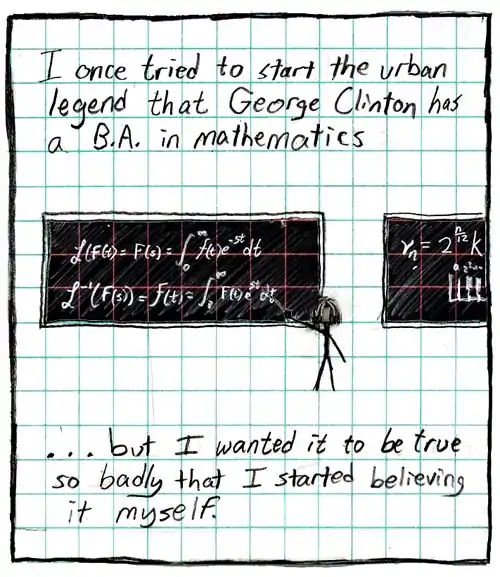 I once tried to start the urban
legend that George Clinton has
a B.A. in mathematics
ℒ(F(t)) = F(s) = ∫₀^∞ f(t)e^-st dt
ℒ⁻¹(F(s)) = f(t) = ∫₂^∞ F(t)e^st dt
rₙ = 2^(n/12) k
... but I wanted it to be true
so badly that I started believing
it myself.